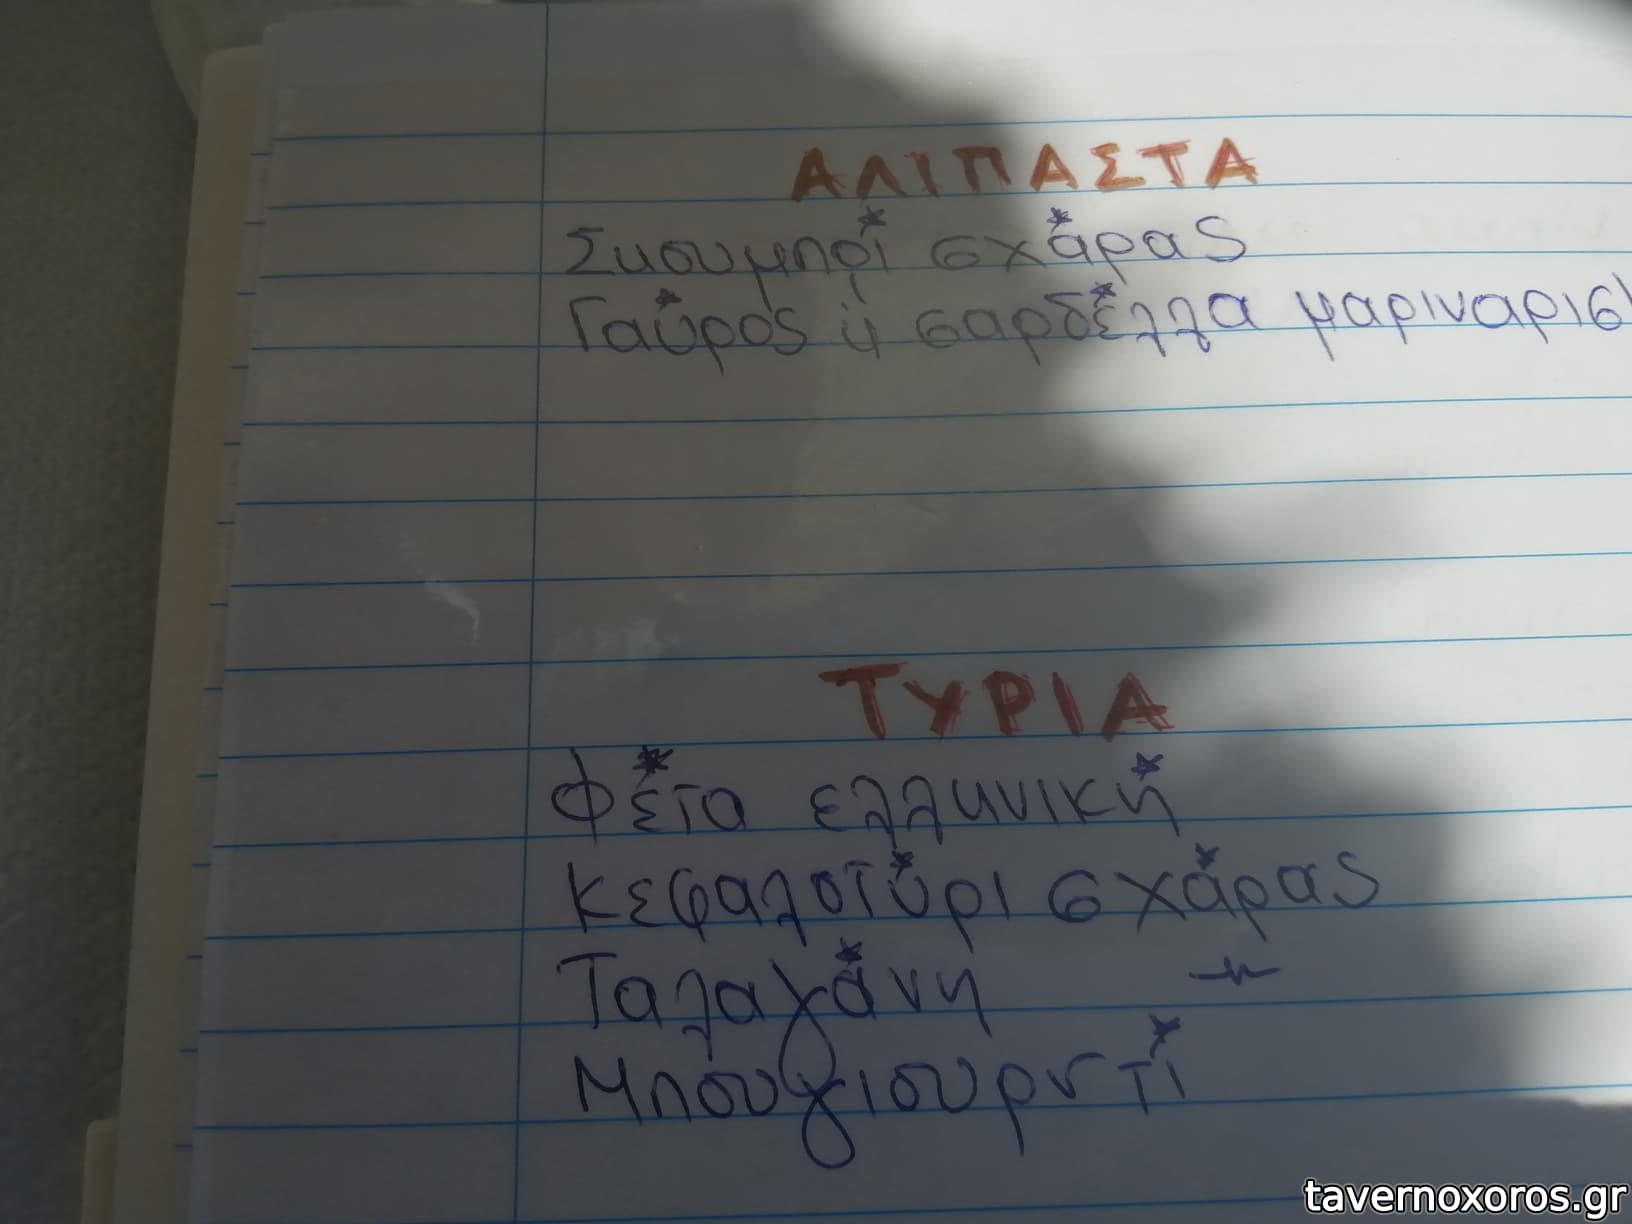 ΑΛΙΠΑΣΤΑ
Σκουμπρί σχάρας
Γαύρος ή σαρδέλλα μαριναρισ
ΤΥΡΙΑ
Φέτα ελληνική
Κεφαλοτύρι σχάρας
Ταλαγάνη
Μπουγιουρντί
tavernoxoros.gr